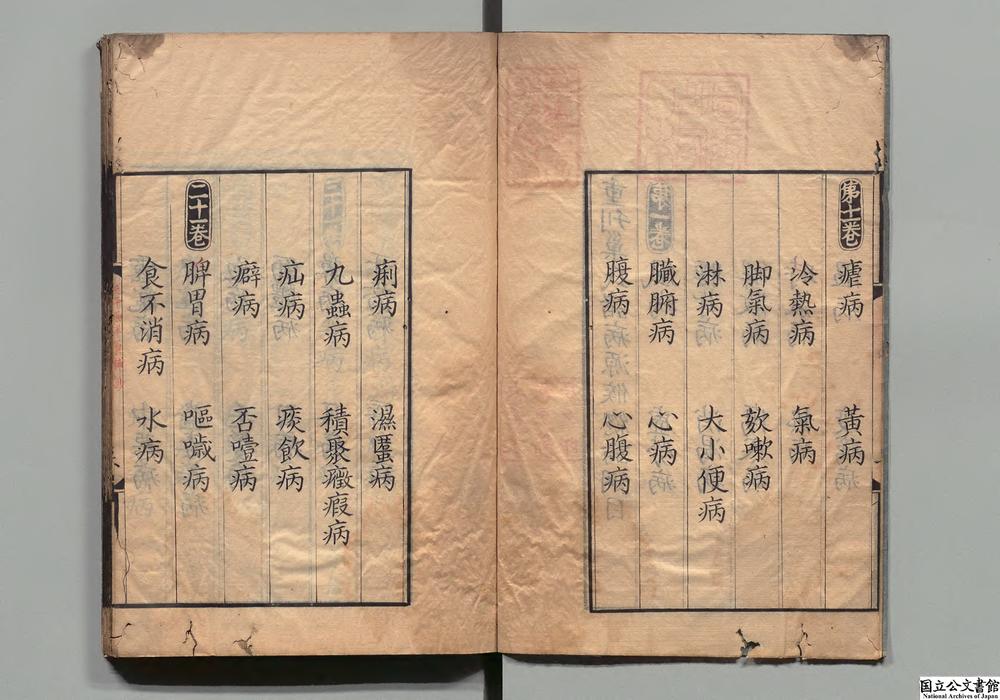 第十一卷 瘧病 黃病
冷熱病 氣病
脚氣病 欬嗽病
淋病 大小便病
臟腑病 心病
腹病 心腹病
痢病 濕䘌病
九蟲病 積聚癥瘕病
疝病 痰飲病
癖病 否噎病
二十一卷 脾胃病 嘔噦病
食不消病 水病
国立公文書館
National Archives of Japan